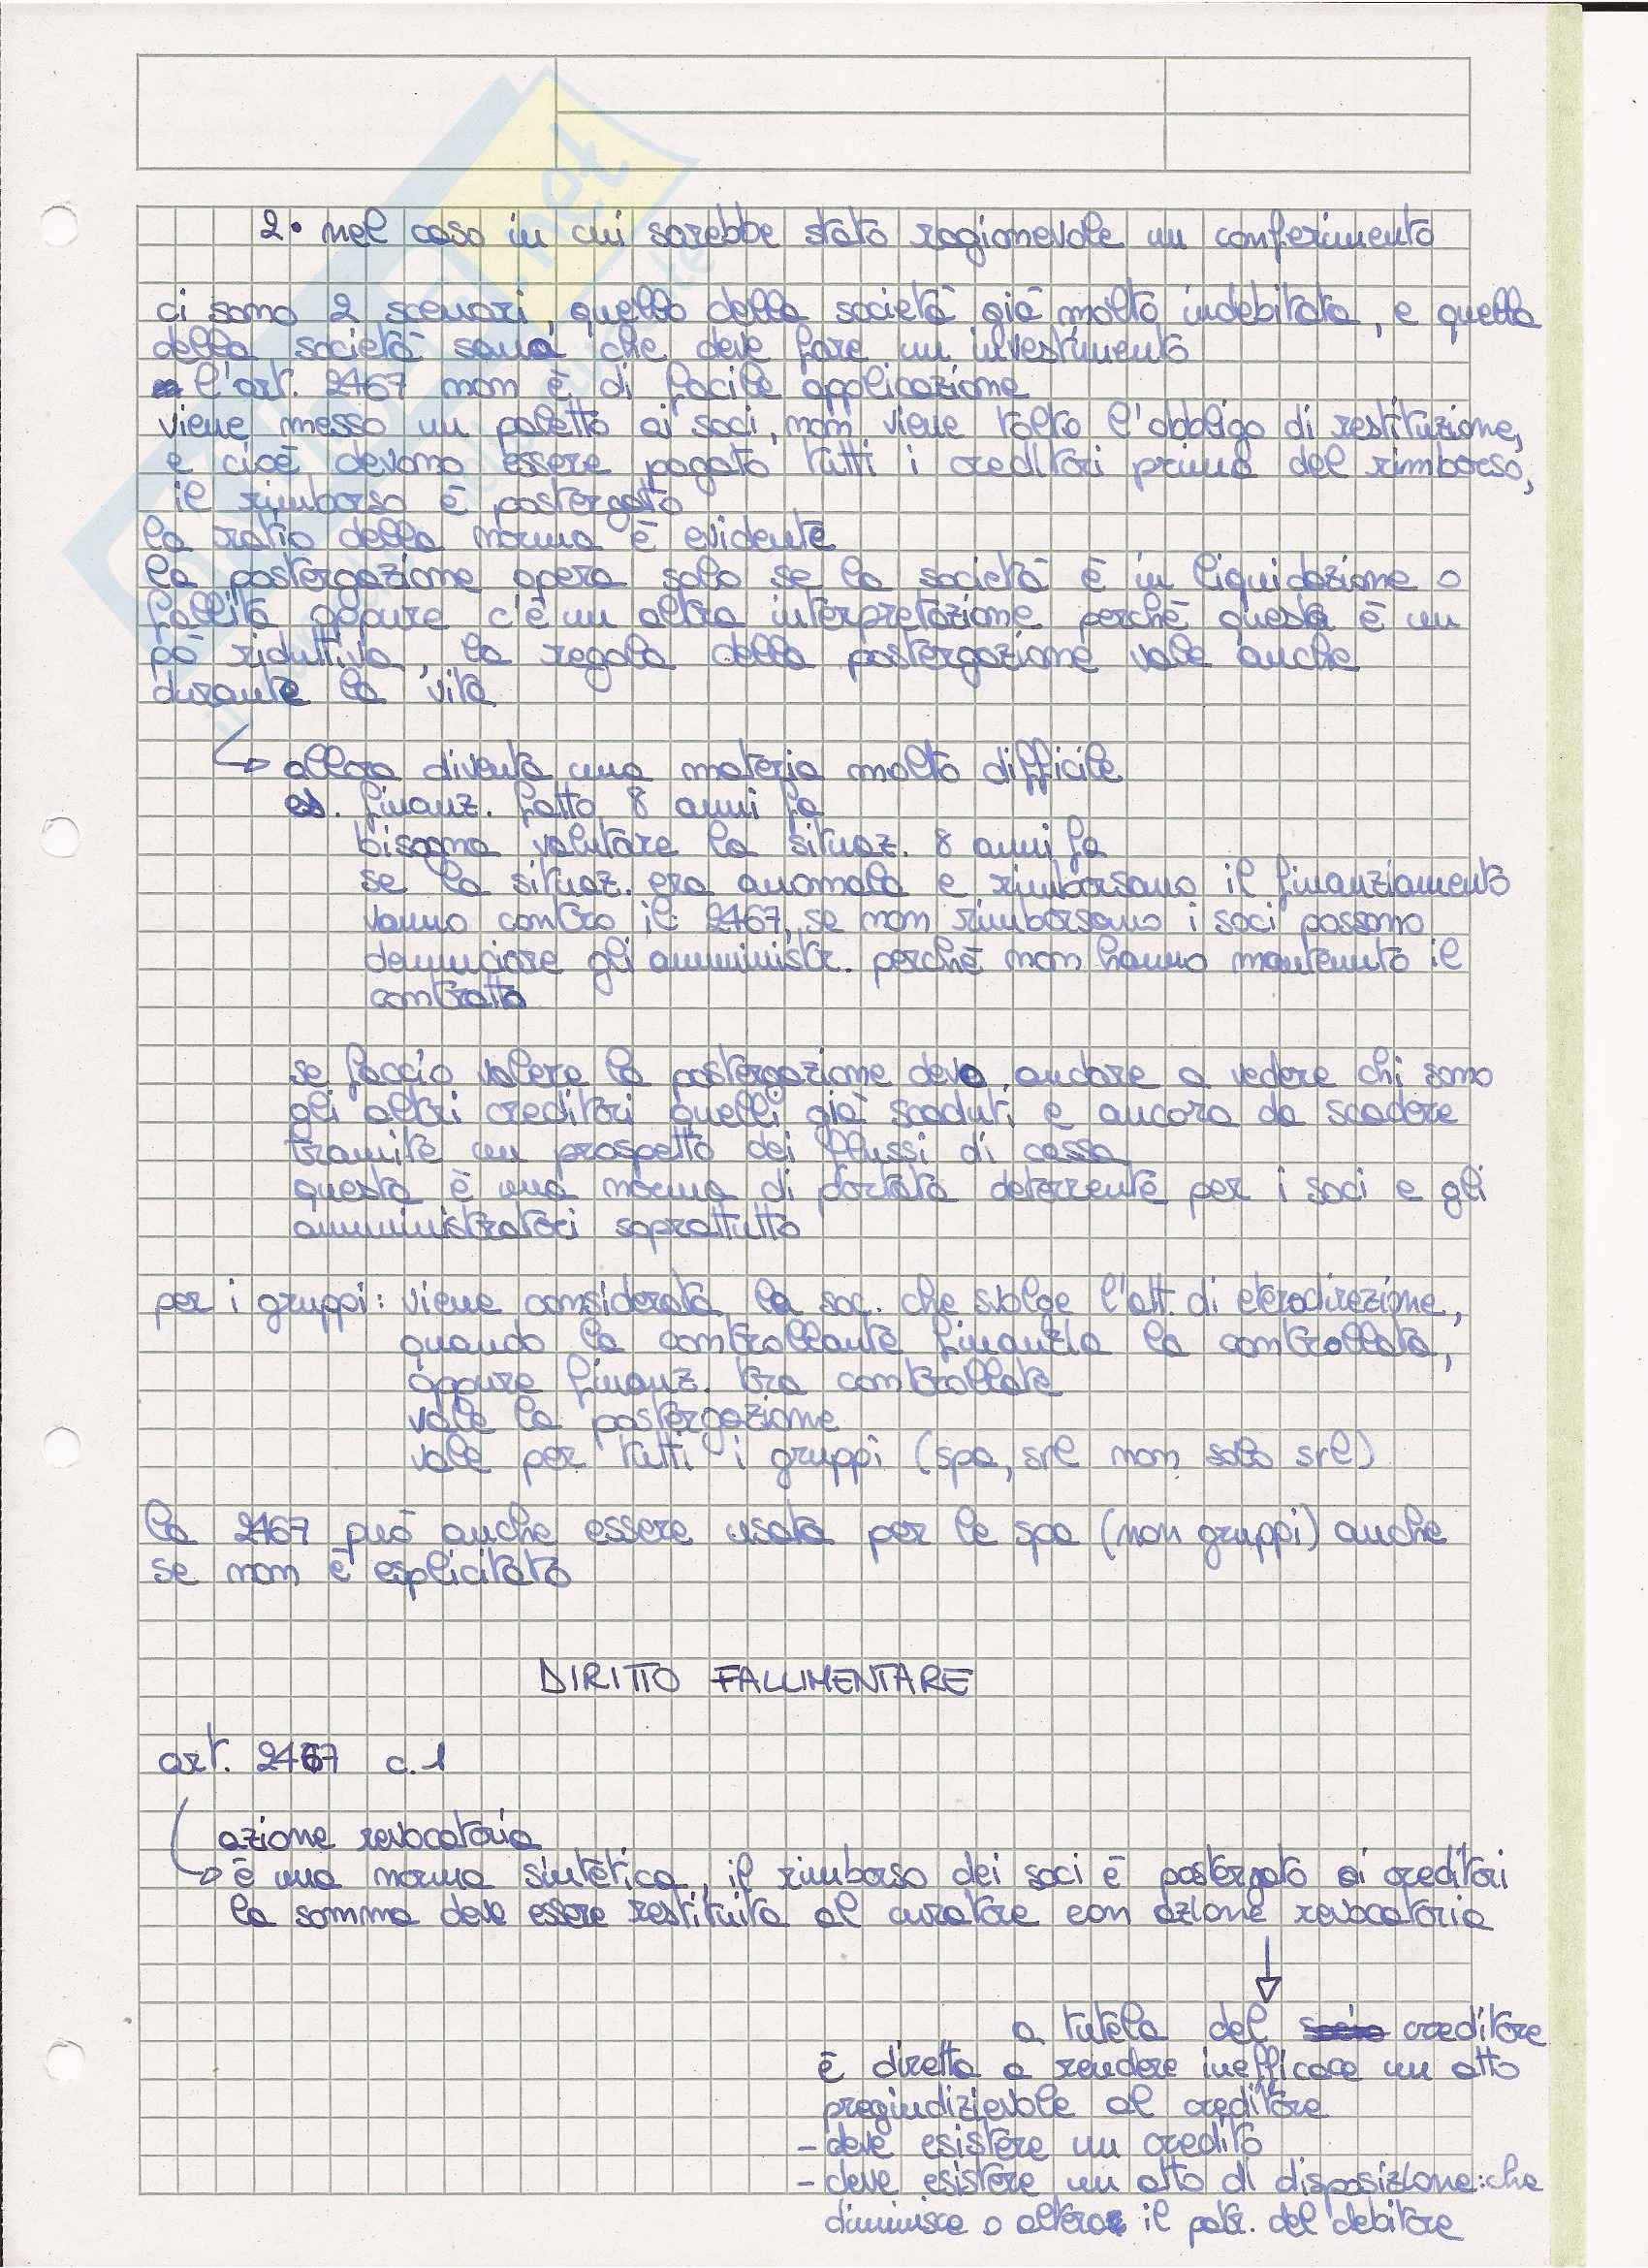 2• nel caso in cui sarebbe stato ragionevole un conferimento
ci sono 2 scenari, quello della società già molto indebitata, e quella
della società sana che deve fare un investimento
l'art. 2467 non è di facile applicazione
viene messo un paletto ai soci, non viene tolto l'obbligo di restituzione,
e cioè devono essere pagato tutti i creditori prima del rimborso,
il rimborso è postergato
la ratio della norma è evidente
la postergazione opera solo se la società è in liquidazione o
fallita oppure c'è un altra interpretazione perchè questa è un
pò riduttiva, la regola della postergazione vale anche
durante la vita
allora diventa una materia molto difficile
es. finanz. fatto 8 anni fa
bisogna valutare la situaz. 8 anni fa
se la situaz. era anomala e rimborsano il finanziamento
vanno contro il 2467, se non rimborsano i soci possono
denunciare gli amministr. perchè non hanno mantenuto il
contratto
se faccio valere la postergazione devo andare a vedere chi sono
gli altri creditori quelli già scaduti e ancora da scadere
tramite un prospetto dei flussi di cassa
questa è una norma di portata deterrente per i soci e gli
amministratori soprattutto
per i gruppi: viene considerata la soc. che svolge l'att. di eterodirezione,
quando la controllante finanzia la controllata,
oppure finanz. tra controllate
vale la postergazione
vale per tutti i gruppi (spa, srl non solo srl)
la 2467 può anche essere usata per le spa (non gruppi) anche
se non è esplicitato
DIRITTO FALLIMENTARE
art. 2467 c.1
azione revocatoria
è una norma sintetica, il rimborso dei soci è postergato ai creditori
la somma deve essere restituita al curatore con azione revocatoria
a tutela del creditore
è diretta a rendere inefficace un atto
pregiudizievole al creditore
- deve esistere un credito
- deve esistere un atto di disposizione: che
diminuisce o altera il patr. del debitore
net